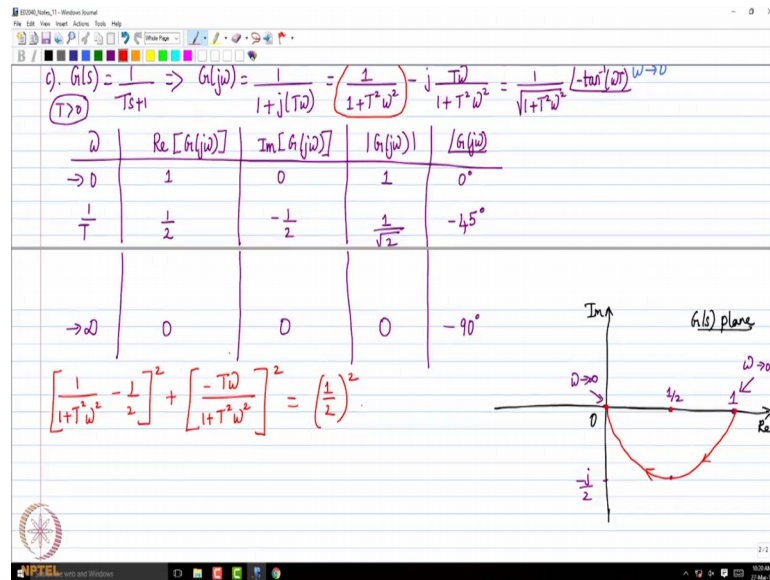 ED2040_Notes_11 - Windows Journal
File Edit View Insert Actions Tools Help
Whole Page
B I
c). G(s) = 1/(Ts+1) => G(jω) = 1/(1+j(Tω)) = 1/(1+T²ω²) - j Tω/(1+T²ω²) = 1/√(1+T²ω²) ∠-tan⁻¹(ωT) ω→0
T>0
ω Re[G(jω)] Im[G(jω)] |G(jω)| ∠G(jω)
→0 1 0 1 0°
1/T 1/2 -1/2 1/√2 -45°
→∞ 0 0 0 -90°
[1/(1+T²ω²) - 1/2]² + [-Tω/(1+T²ω²)]² = (1/2)²
Im
G(s) plane
ω→∞
ω→0
1/2
1
0
Re
-j/2
2/2
NPTEL
the web and Windows
10:20 AM